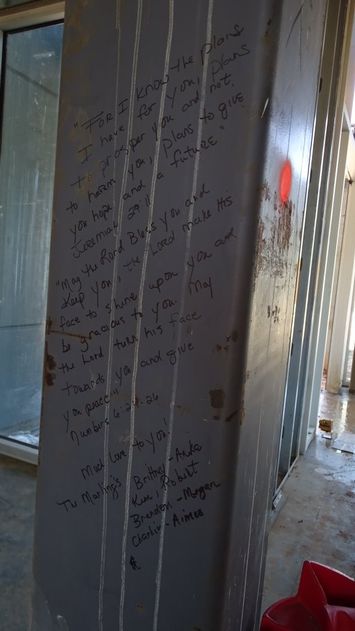 "For I know the plans
I have for you, plans
to prosper you and not
to harm you, plans to give
you hope and a future."
Jeremiah 29:11
"May the Lord Bless you and
Keep you, the Lord make His
face to shine upon you and
be gracious to you. May
the Lord turn his face
towards you and give
you peace" 
Numbers 6:24-26
Much Love to you!
Brittney - 
Robert
Brenden - Morgan
Charlie - Aimee